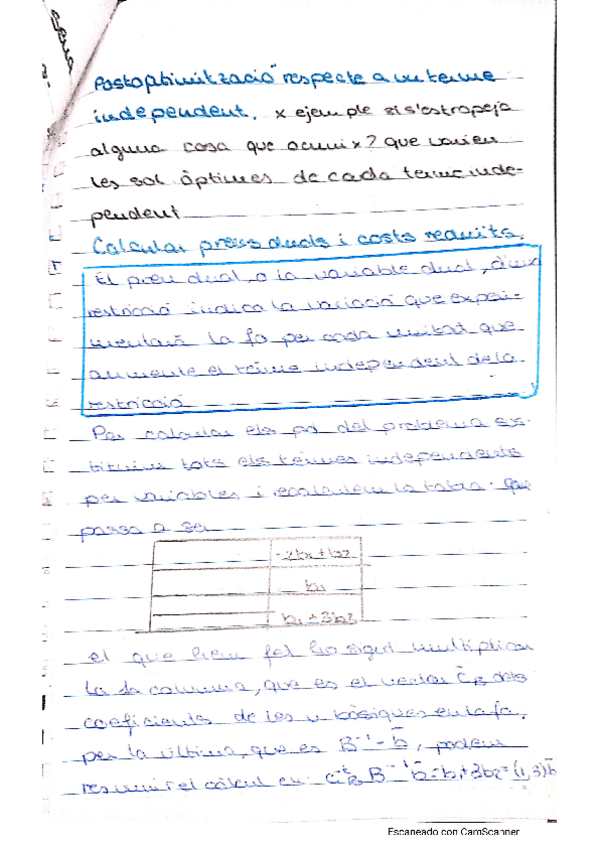 Postoptimització respecte a un terme
independent. x ejemple si s'estropeja
alguna cosa que ocurrix? que varien
les sol òptimes de cada terme inde-
pendent
Calcular preus duals i costs reduïts.
El preu dual, o la variable dual, d'una
restricció indica la variació que experi-
mentarà la fo per cada unitat que
aumente el terme independent de la
restricció
Per calcular els pd del problema subs-
tituim tots els termes independents
per variables i recalculem la tabla. Que
passa a ser
-2b1+b2
b1
b1+3b2
el que hem fet ha sigut multiplicar
la 2a columna, que es el vector C̄B dels
coeficients de les v bàsiques en la fo,
per la última, que es B⁻¹·b̄, podem
resumir el càlcul en: c̄ᵗB B⁻¹b̄=b1+3b2=(1,3)b̄
Escaneado con CamScanner